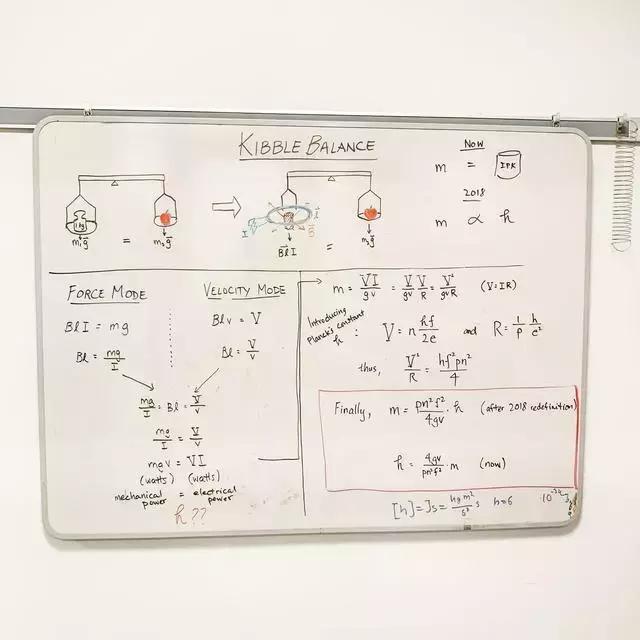 KIBBLE BALANCE
NOW
m = IPK
2018
m ∝ h
1kg
m₁g⃗ = m₂g⃗
I
B⃗
BlI = m₂g⃗
FORCE MODE
BlI = mg
Bl = mg/I
VELOCITY MODE
Blv = V
Bl = V/v
mg/I = Bl = V/v
mg/I = V/v
mgv = VI
(watts) (watts)
mechanical power = electrical power
h??
m = VI/gv = V/gv V/R = V²/gvR (V=IR)
Introducing
Planck's constant
h : V = n hf/2e and R = 1/p h/e²
thus, V²/R = hf²pn²/4
Finally, m = pn²f²/4gv · h (after 2018 redefinition)
h = 4gv/pn²f² · m (now)
[h] = Js = kg m²/s² s h=6